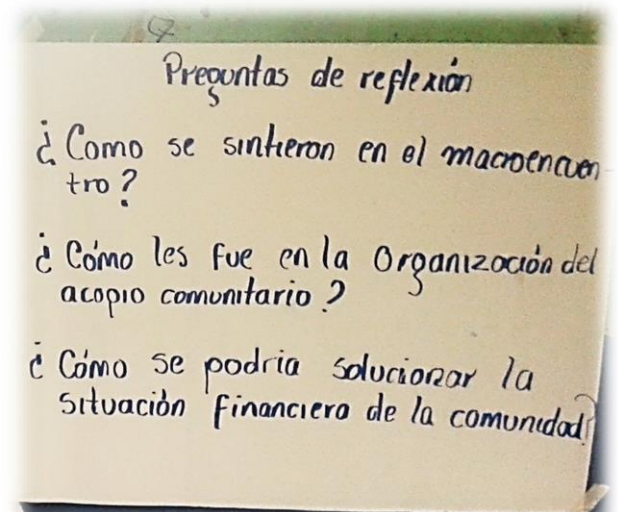 Preguntas de reflexión
¿Como se sintieron en el macroencuen
tro?
¿Cómo les fue en la Organización del
acopio comunitario?
¿Cómo se podria solucionar la
situación financiera de la comunidad?